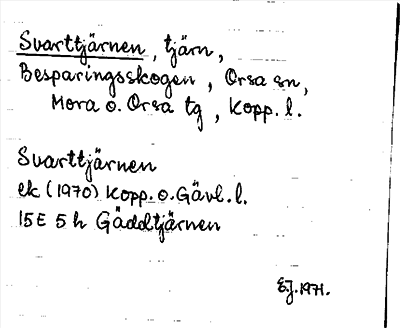 Svarttjärnen, tjärn,
Besparingsskogen, Orsa sn,
Mora o. Orsa tg, Kopp. l.
Svarttjärnen
ek (1970) Kopp. o. Gävl. l.
15E 5h Gäddtjärnen
E.J. 1971.